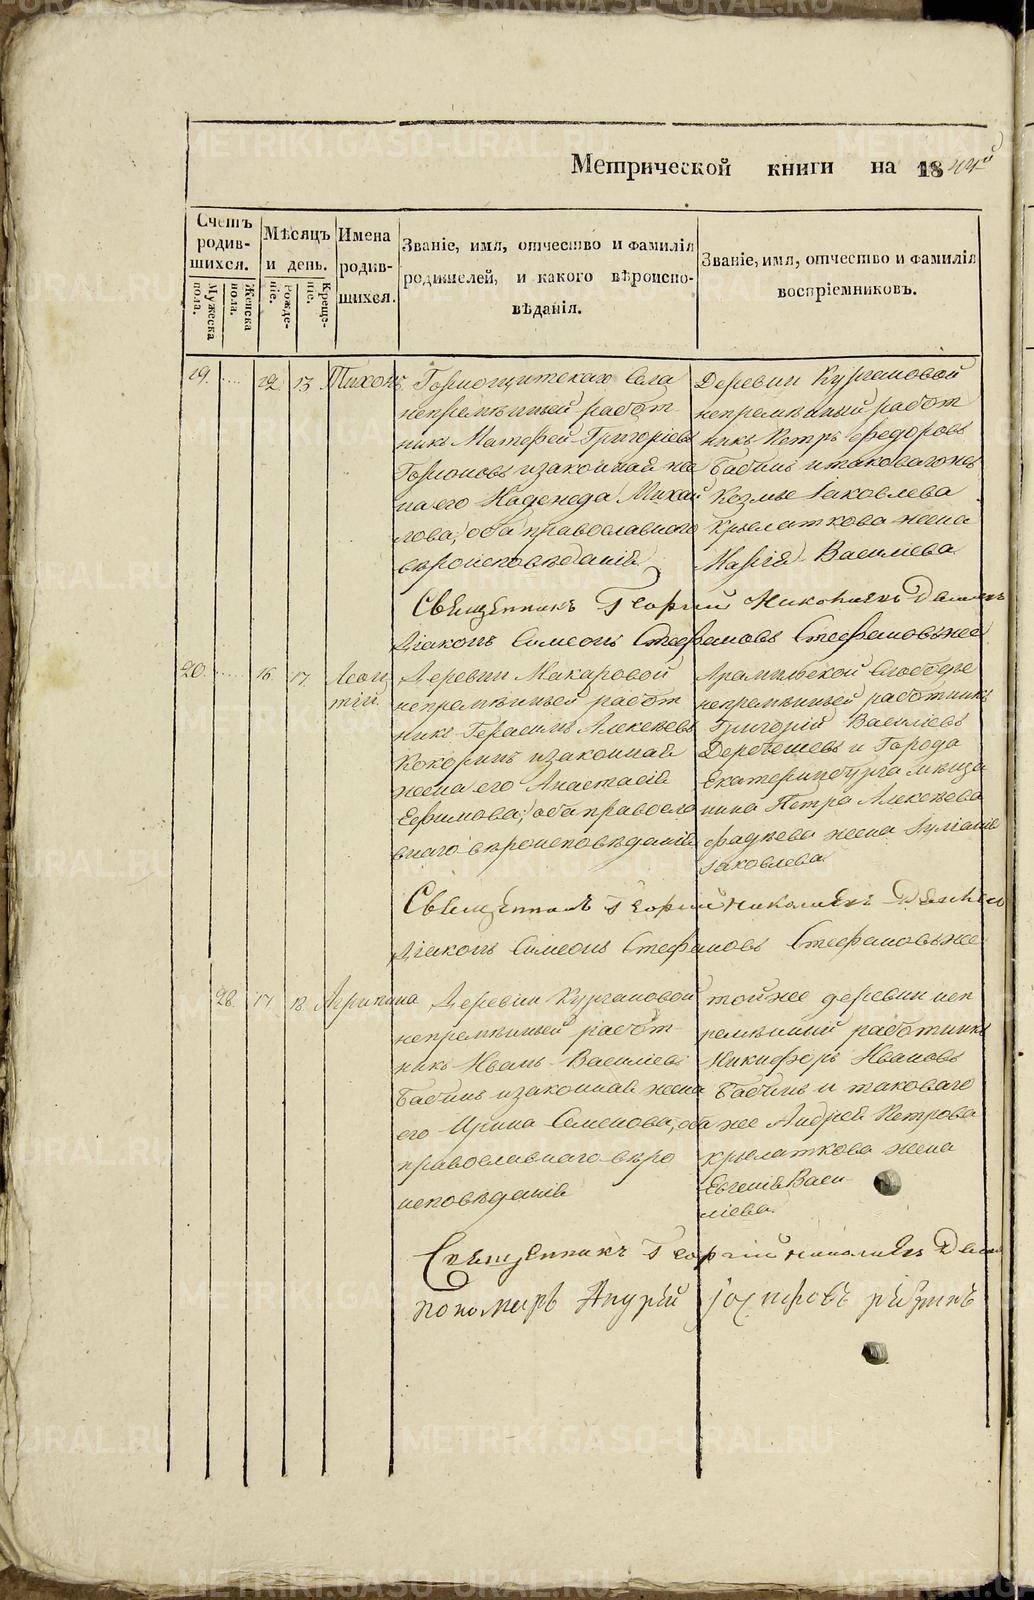 Метрической книги на 1844й
Счетъ родив-шихся.
Мужеска пола.
Женска пола.
Мѣсяцъ и день.
Рожде-ніе.
Креще-ніе.
Имена родив-шихся.
Званіе, имя, отчество и фамилія
родителей, и какого вѣроиспо-
вѣданія.
Званіе, имя, отчество и фамилія
воспріемниковъ.
19. 12 13 Тихонъ
Горнощитскаго Села
непремѣнный работ
никъ Матфей Григорьевъ
и законная же
на его Надежда Михай
лова, оба православнаго
вѣроисповѣданія
Деревни Кургановой
непремѣнный работ
никъ Петръ Федоровъ
Бабинъ и таковагожъ
Козмы Іаковлева
Крылаткова жена
Марія Василіева
Священникъ Георгій Николаевъ
Діаконъ Симеонъ Стефановъ Стефановыже
20. 16 17 Леон
тій
Деревни Макаровой
непремѣнный работ
никъ Герасимъ Алексѣевъ
Кокоринъ и законная
жена его Анастасія
Ефимова, оба правосла
внаго вѣроисповѣданія
Арамильской Слободы
непремѣнный работникъ
Григорій Василіевъ
и Города
Екатеринбурга мѣща
нина Петра Алексѣева
Фадѣева жена Іуліанія
Іаковлева
Священникъ Георгій Николаевъ
Діаконъ Симеонъ Стефановъ Стефановыже
28. 17 18 Агрипина
Деревни Кургановой
непремѣнный работ
никъ Иванъ Василіевъ
Бабинъ и законная жена
его Ирина Семенова, оба
православнаго вѣро
исповѣданія
тойже деревни неп
ремѣнный работникъ
Никифоръ Ивановъ
Бабинъ и таковаго
же Андрея Петрова
Крылаткова жена
Евгенія Васи
ліева
Священникъ Георгій Николаевъ
пономарь Андрей
METRIKI.GASO-URAL.RU